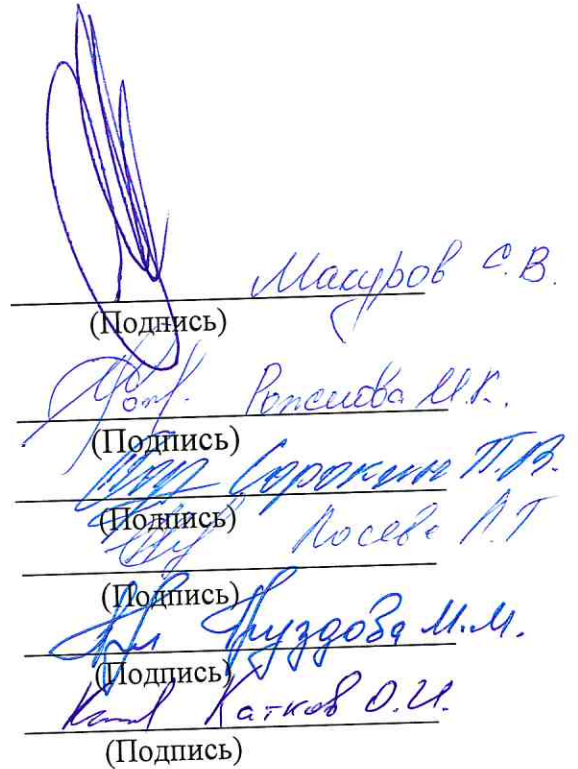 Макуров С.В.
(Подпись)
М.К.
(Подпись)
Сорокин П.В.
(Подпись)
Лосева Л.Т
(Подпись)
Груздова М.М.
(Подпись)
Катков О.И.
(Подпись)